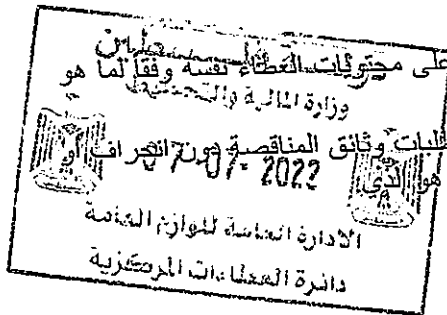 على محتويات العطاء نفسه وفقا لما هو
وزارة المالية والتخطيط
طلبات وثائق المناقصة دون انحراف أو
07-07-2022
هو الذي
الادارة العامة للوازم العامة
دائرة العطاءات المركزية